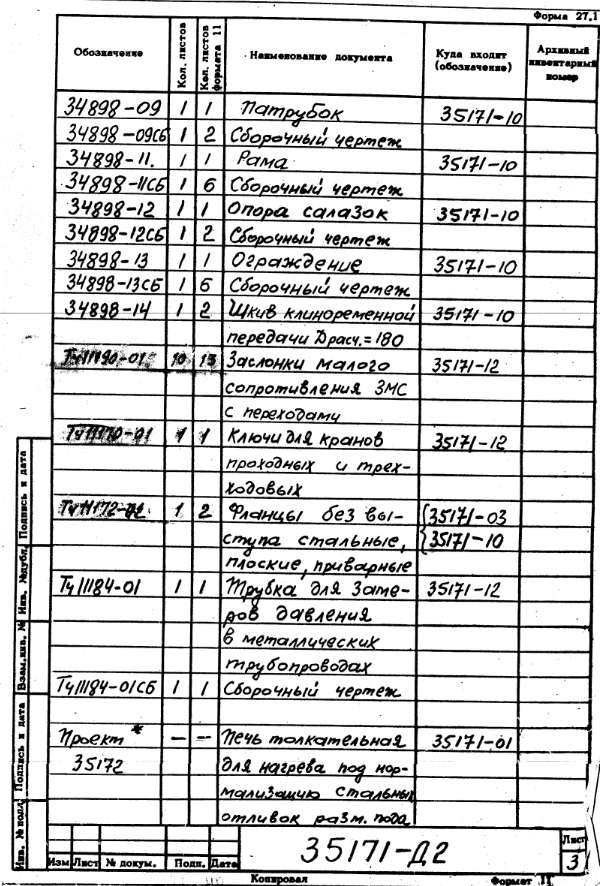 Форма 27.1
Обозначение Кол. листов Кол. листов формата 11 Наименование документа Куда входит (обозначение) Архивный инвентарный номер
34898-09 1 1 Патрубок 35171-10
34898-09СБ 1 2 Сборочный чертеж
34898-11. 1 1 Рама 35171-10
34898-11СБ 1 6 Сборочный чертеж
34898-12 1 1 Опора салазок 35171-10
34898-12СБ 1 2 Сборочный чертеж
34898-13 1 1 Ограждение 35171-10
34898-13СБ 1 6 Сборочный чертеж
34898-14 1 2 Шкив клиноременной 35171-10
передачи Dрасч.=180
10 13 Заслонки малого 35171-12
сопротивления ЗМС
с переходами
1 1 Ключи для кранов 35171-12
проходных и трех-
ходовых
1 2 Фланцы без вы- 35171-03
ступа стальные, 35171-10
плоские, приварные
Тч11184-01 1 1 Трубка для заме- 35171-12
ров давления
в металлических
трубопроводах
Тч11184-01СБ 1 1 Сборочный чертеж
Проект* — — Печь толкательная 35171-01
35172 для нагрева под нор-
мализацию стальных
отливок разм. пода
Инв. № подл. Подпись и дата Взам. инв. № Инв. № дубл. Подпись и дата
35171-Д2
Лист
3
Изм Лист № докум. Подп. Дата
Копировал Формат 11